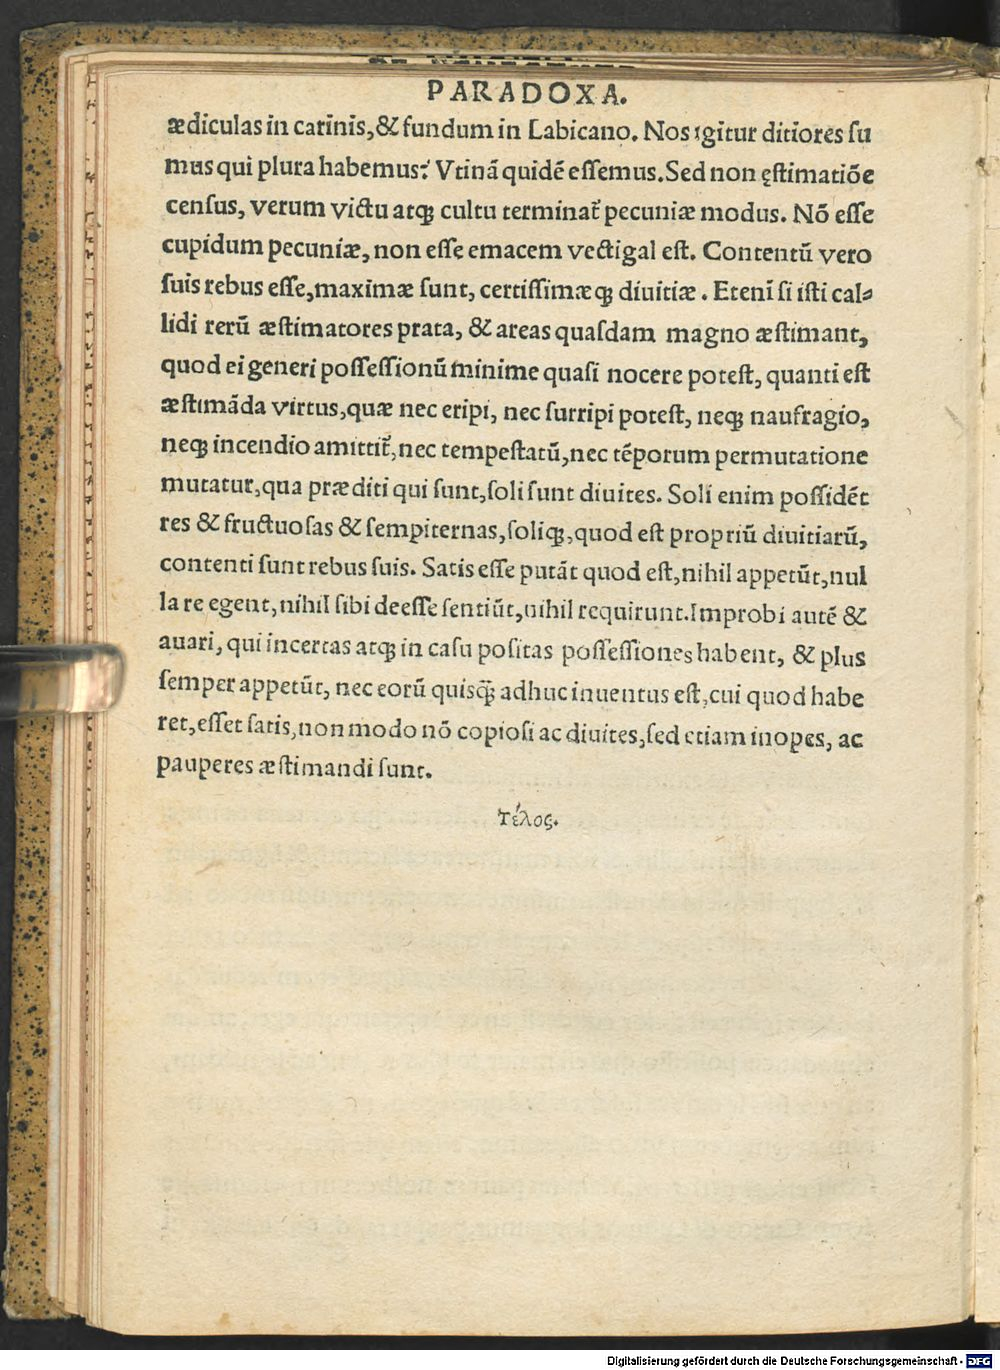 PARADOXA.
ædiculas in carinis, & fundum in Labicano. Nos igitur ditiores ſu
mus qui plura habemus? Vtinã quidẽ eſſemus. Sed non ęſtimatiõe
cenſus, verum victu atqꝫ cultu terminat᷑ pecuniæ modus. Nõ eſſe
cupidum pecuniæ, non eſſe emacem vectigal eſt. Contentũ vero
ſuis rebus eſſe, maximæ ſunt, certiſſimæqꝫ diuitiæ. Etenĩ ſi iſti cal⸗
lidi rerũ æſtimatores prata, & areas quaſdam magno æſtimant,
quod ei generi poſſeſſionũ minime quaſi nocere poteſt, quanti eſt
æſtimãda virtus, quæ nec eripi, nec ſurripi poteſt, neqꝫ naufragio,
neqꝫ incendio amittit᷑, nec tempeſtatũ, nec tẽporum permutatione
mutatur, qua præditi qui ſunt, ſoli ſunt diuites. Soli enim poſſidẽt
res & fructuoſas & ſempiternas, ſoliqꝫ, quod eſt propriũ diuitiarũ,
contenti ſunt rebus ſuis. Satis eſſe putãt quod eſt, nihil appetũt, nul
la re egent, nihil ſibi deeſſe ſentiũt, nihil requirunt. Improbi autẽ &
auari, qui incertas atqꝫ in caſu poſitas poſſeſſiones habent, & plus
ſemper appetũt, nec eorũ quiſq̃ adhuc inuentus eſt, cui quod habe
ret, eſſet ſatis, non modo nõ copioſi ac diuites, ſed etiam inopes, ac
pauperes æſtimandi ſunt.
Τέλος.
Digitalisierung gefördert durch die Deutsche Forschungsgemeinschaft - DFG